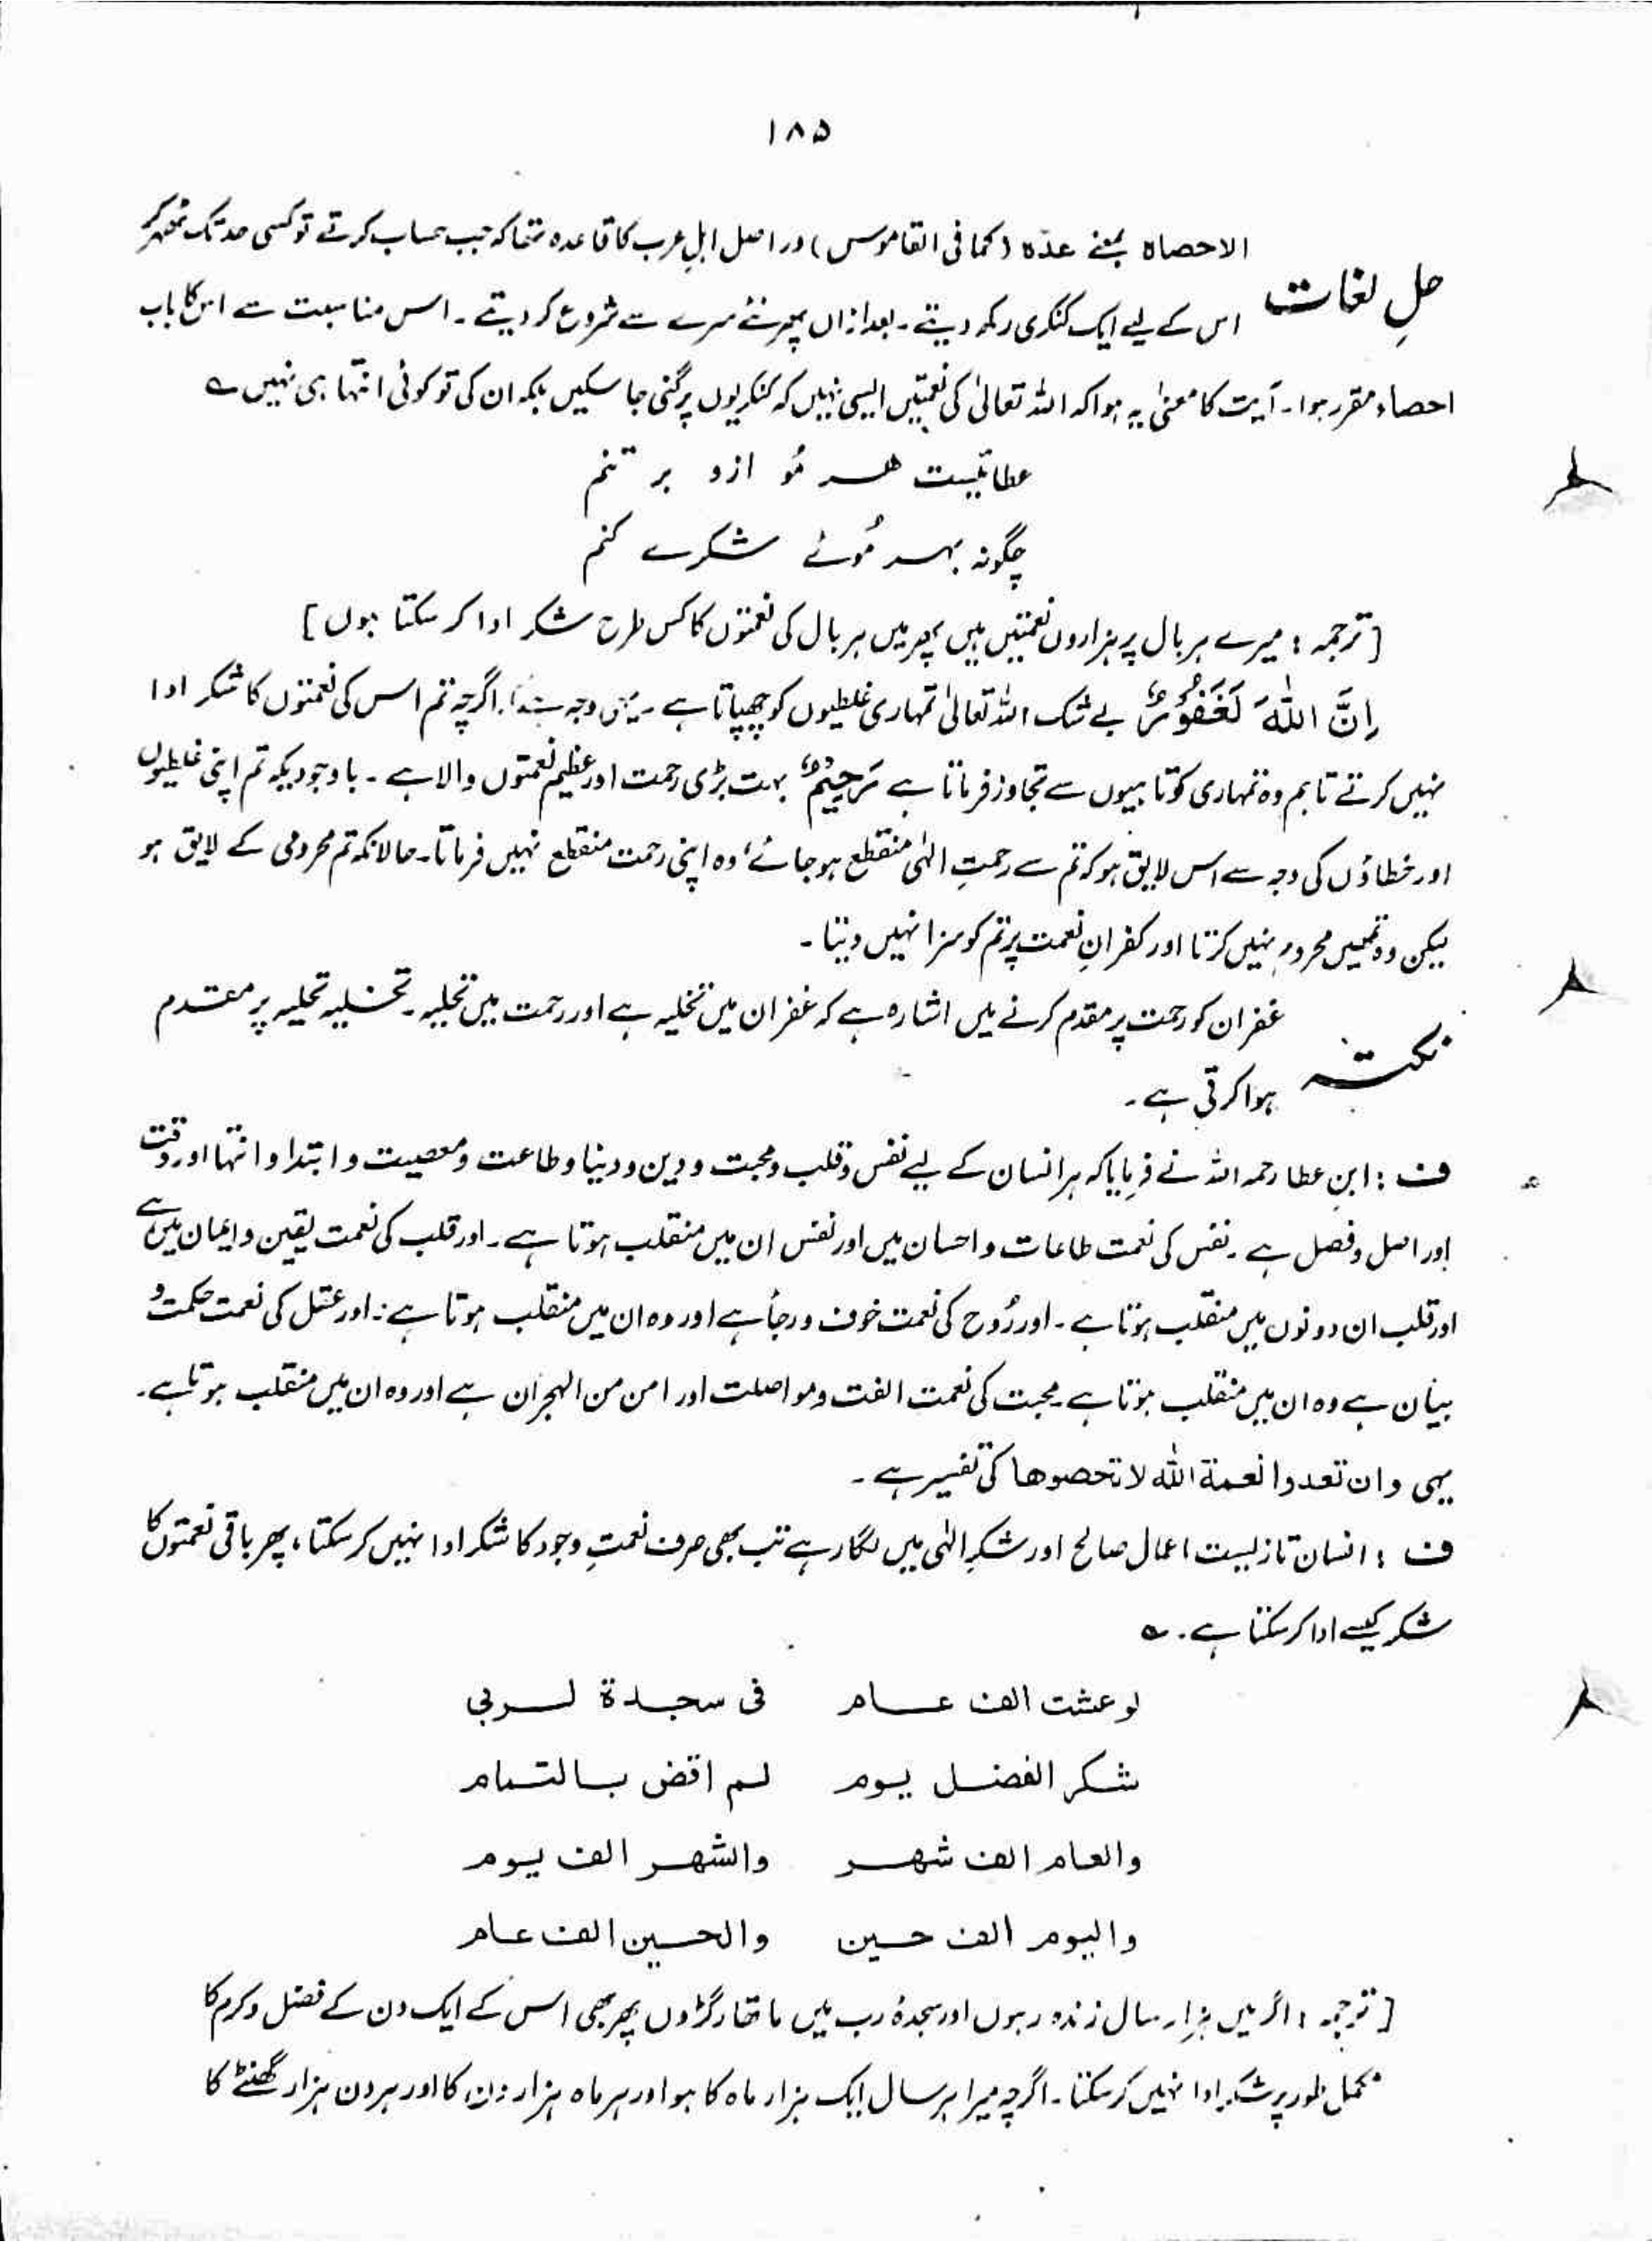 ۱۸۵
حلِ لغات
الاحصاہ بمعنے عدّہ (کما فی القاموس) در اصل اہلِ عرب کا قاعدہ تھا کہ جب حساب کرتے تو کسی حد تک ٹھہر کر
اس کے لیے ایک کنکری رکھ دیتے۔ بعد ازاں پھر نئے سرے سے شروع کر دیتے۔ اس مناسبت سے اس کا باب
احصاء مقرر ہوا۔ آیت کا معنیٰ یہ ہوا کہ اللہ تعالیٰ کی نعمتیں ایسی نہیں کہ کنکریوں پر گنی جا سکیں بلکہ ان کی تو کوئی انتہا ہی نہیں ؎
عطائیست ھر مُو ازو بر تنم
چگونہ بہر مُوئے شکرے کنم
[ترجمہ : میرے ہر بال پر ہزاروں نعمتیں ہیں پھر میں ہر بال کی نعمتوں کا کس طرح شکر ادا کر سکتا ہوں]
اِنَّ اللّٰہَ لَغَفُوْرٌ بے شک اللہ تعالیٰ تمہاری غلطیوں کو چھپاتا ہے۔ یہی وجہ ہے اگرچہ تم اس کی نعمتوں کا شکر ادا
نہیں کرتے تاہم وہ تمہاری کوتاہیوں سے تجاوز فرماتا ہے رَحِیْمٌ بہت بڑی رحمت اور عظیم نعمتوں والا ہے۔ باوجودیکہ تم اپنی غلطیوں
اور خطاؤں کی وجہ سے اس لایق ہو کہ تم سے رحمتِ الٰہی منقطع ہو جائے، وہ اپنی رحمت منقطع نہیں فرماتا۔ حالانکہ تم محرومی کے لایق ہو
لیکن وہ تمہیں محروم نہیں کرتا اور کفرانِ نعمت پر تم کو سزا نہیں دیتا۔
نکتہ
غفران کو رحمت پر مقدم کرنے میں اشارہ ہے کہ غفران میں تخلیہ ہے اور رحمت میں تحلیہ۔ تخلیہ تحلیہ پر مقدم
ہوا کرتی ہے۔
ف : ابنِ عطا رحمہ اللہ نے فرمایا کہ ہر انسان کے لیے نفس و قلب و محبت و دین و دینا و طاعت و معصیت و ابتدا و انتہا اور وقت
اور اصل و فصل ہے۔ نفس کی نعمت طاعات و احسان میں اور نفس ان میں منقلب ہوتا ہے۔ اور قلب کی نعمت یقین و ایمان میں ہے
اور قلب ان دونوں میں منقلب ہوتا ہے۔ اور رُوح کی نعمت خوف و رجأ ہے اور وہ ان میں منقلب ہوتا ہے۔ اور عقل کی نعمت حکمت و
بیان ہے وہ ان میں منقلب ہوتا ہے۔ محبت کی نعمت الفت و مواصلت اور امن من الہجران ہے اور وہ ان میں منقلب ہوتا ہے۔
یہی وان تعدوا نعمۃ اللہ لا تحصوھا کی تفسیر ہے۔
ف : انسان تا زیست اعمال صالح اور شکرِ الٰہی میں لگا رہے تب بھی صرف نعمتِ وجود کا شکر ادا نہیں کر سکتا، پھر باقی نعمتوں کا
شکر کیسے ادا کر سکتا ہے۔ ؎
لو عشت الف عام فی سجدۃ لربی
شکر الفضل یوم لم اقض بالتمام
والعام الف شھر والشھر الف یوم
والیوم الف حین والحین الف عام
[ترجمہ : اگر میں ہزار سال زندہ رہوں اور سجدۂ رب میں ماتھا رگڑوں پھر بھی اس کے ایک دن کے فضل و کرم کا
مکمل طور پر شکر ادا نہیں کر سکتا۔ اگرچہ میرا ہر سال ایک ہزار ماہ کا ہو اور ہر ماہ ہزار دن کا اور ہر دن ہزار گھنٹے کا